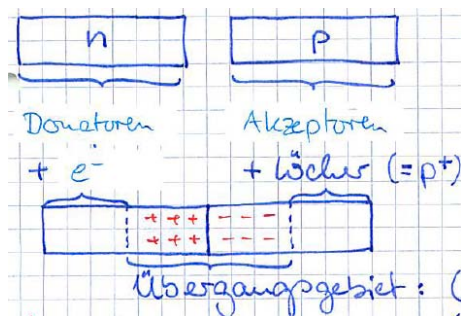 n p
Donatoren Akzeptoren
+ e⁻ + Löcher (=p⁺)
+ + + - - -
+ + + - - -
Übergangsgebiet: (